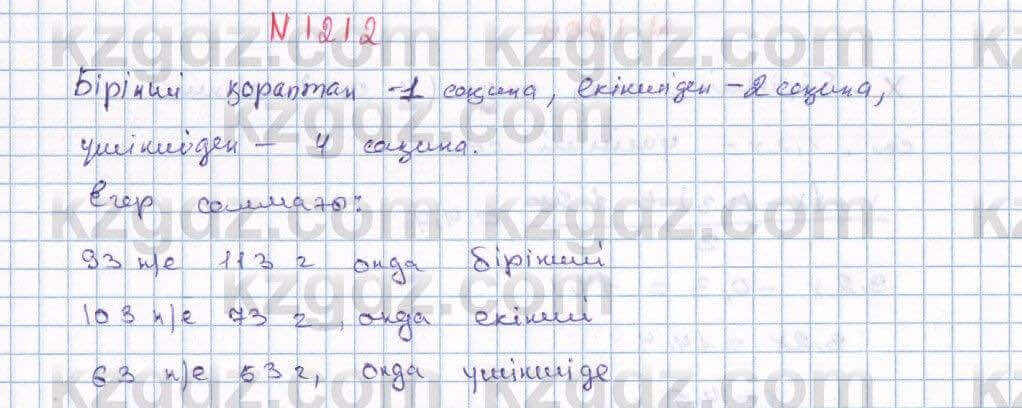 N 1212
Бірінші қораптан - 1 сақина, екіншіден - 2 сақина,
үшіншіден - 4 сақина.
Егер салмағы:
93 н/е 113 г онда бірінші
103 н/е 73 г, онда екінші
63 н/е 53 г, онда үшіншіде
kzgdz.com